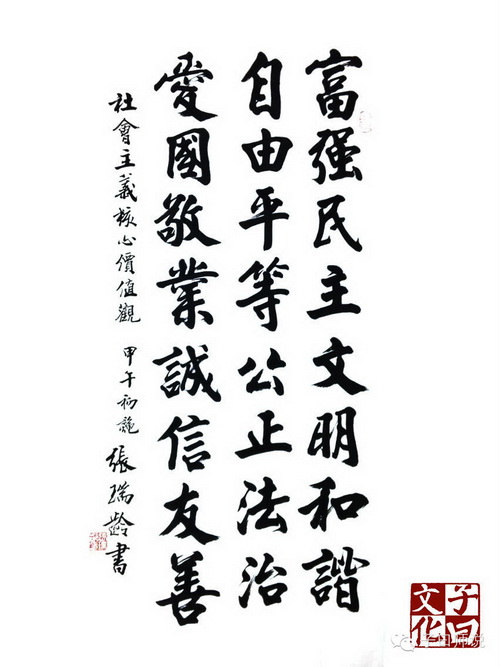 富强民主文明和諧
自由平等公正法治
愛國敬業誠信友善
社會主義核心價值觀
甲午初詵 張瑞齡書
子曰文化
子曰师说